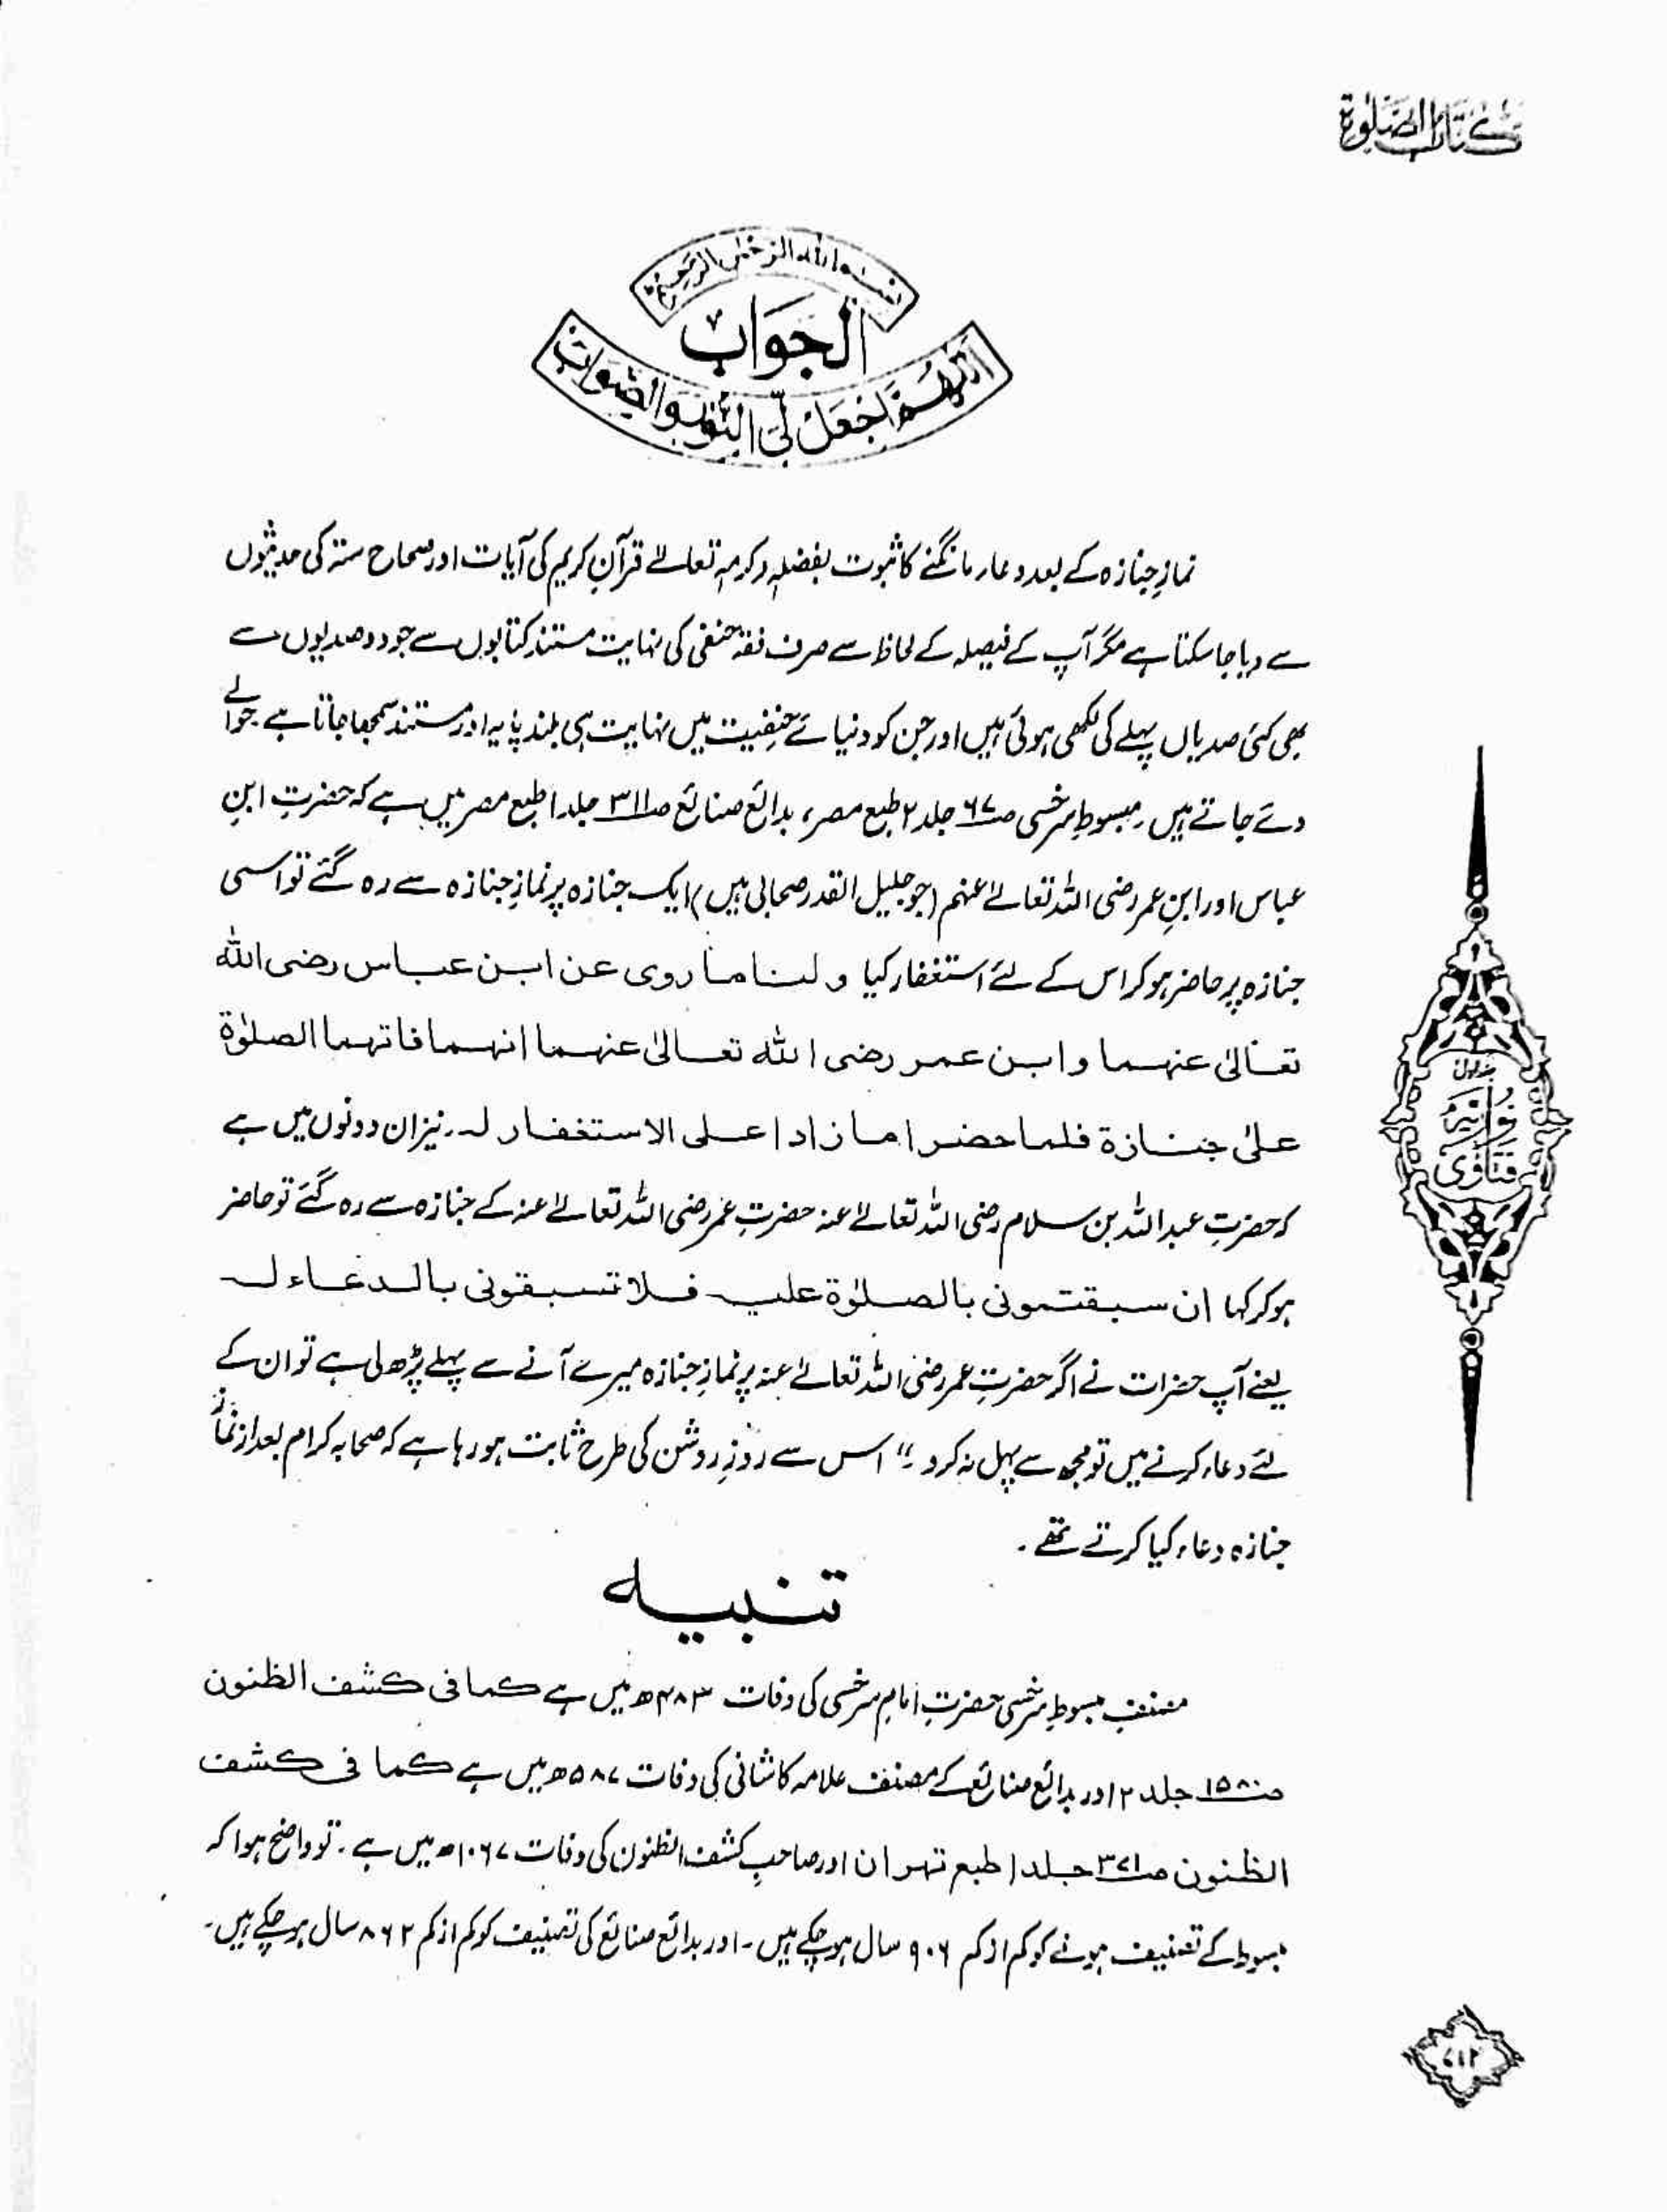 كتاب الصلوة
بسم الله الرحمن الرحيم
الجواب
اللهم اجعل لی النور والصواب
نمازِ جنازہ کے بعد دعا ر مانگنے کا ثبوت بفضلہٖ وکرمہٖ تعالےٰ قرآنِ کریم کی آیات اور صحاح ستہ کی حدیثوں
سے دیا جا سکتا ہے مگر آپ کے فیصلہ کے لحاظ سے صرف فقہ حنفی کی نہایت مستند کتابوں سے جو دو صدیوں سے
بھی کئی صدیاں پہلے کی لکھی ہوئی ہیں اور جن کو دنیائے حنفیت میں نہایت ہی بلند پایہ اور مستند سمجھا جاتا ہے حوالے
دئے جاتے ہیں۔ مبسوطِ سرخسی صـ۶۷ جلد ۲ طبع مصر، بدائع صنائع صـ۳۱۱ جلد ۱ طبع مصر میں ہے کہ حضرتِ ابنِ
عباس اور ابنِ عمر رضی اللہ تعالےٰ عنہم (جو جلیل القدر صحابی ہیں) ایک جنازہ پر نمازِ جنازہ سے رہ گئے تو اسی
جنازہ پر حاضر ہو کر اس کے لئے استغفار کیا و لنا ما روی عن ابن عباس رضی الله
تعالیٰ عنہما و ابن عمر رضی الله تعالیٰ عنہما انہما فاتہما الصلوٰة
علیٰ جنازة فلما حضرا ما زادا علی الاستغفار لہ۔ نیز ان دونوں میں ہے
کہ حضرتِ عبداللہ بن سلام رضی اللہ تعالےٰ عنہ حضرتِ عمر رضی اللہ تعالےٰ عنہ کے جنازہ سے رہ گئے تو حاضر
ہو کر کہا ان سبقتمونی بالصلوٰة علیہ فلا تسبقونی بالدعاء لہ
یعنے آپ حضرات نے اگر حضرتِ عمر رضی اللہ تعالےٰ عنہ پر نمازِ جنازہ میرے آنے سے پہلے پڑھ لی ہے تو ان کے
لئے دعاء کرنے میں تو مجھ سے پہل نہ کرو۔“ اس سے روزِ روشن کی طرح ثابت ہو رہا ہے کہ صحابہ کرام بعد از نماز
جنازہ دعاء کیا کرتے تھے۔
تنبیہ
مصنفِ مبسوطِ سرخسی حضرتِ امام سرخسی کی وفات ۴۸۳ھ میں ہے کما فی کشف الظنون
صـ۱۵۸۰ جلد ۲ اور بدائع صنائع کے مصنف علامہ کاشانی کی وفات ۵۸۷ھ میں ہے کما فی کشف
الظنون صـ۳۷۱ جلد ۱ طبع تہران اور صاحبِ کشف الظنون کی وفات ۱۰۶۷ھ میں ہے۔ تو واضح ہوا کہ
مبسوط کے تصنیف ہونے کو کم از کم ۹۰۶ سال ہو چکے ہیں۔ اور بدائع صنائع کی تصنیف کو کم از کم ۸۶۲ سال ہو چکے ہیں۔
جلد اول
نوریہ
فتاوی
۷۱۲